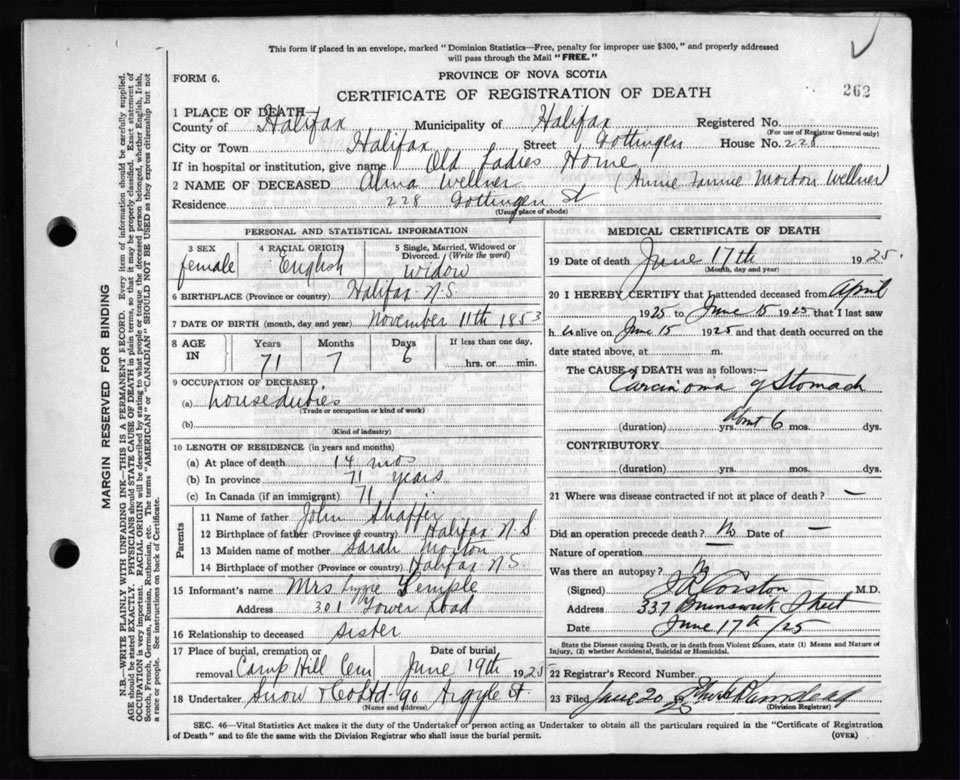 This form if placed in an envelope, marked "Dominion Statistics—Free, penalty for improper use $300," and properly addressed
will pass through the Mail "FREE."
FORM 6.
PROVINCE OF NOVA SCOTIA
CERTIFICATE OF REGISTRATION OF DEATH
262
1 PLACE OF DEATH
County of Halifax Municipality of Halifax Registered No.
(For use of Registrar General only)
City or Town Halifax Street Gottingen House No. 228
If in hospital or institution, give name Old Ladies Home
2 NAME OF DECEASED Alma Wellner (Annie Fannie Morton Wellner)
Residence 228 Gottingen St
(Usual place of abode)
PERSONAL AND STATISTICAL INFORMATION
3 SEX female
4 RACIAL ORIGIN English
5 Single, Married, Widowed or Divorced. (Write the word) widow
6 BIRTHPLACE (Province or country) Halifax N.S
7 DATE OF BIRTH (month, day and year) November 11th 1853
8 AGE IN Years Months Days If less than one day,
71 7 6 hrs. or min.
9 OCCUPATION OF DECEASED
(a) house duties
(Trade or occupation or kind of work)
(b)
(Kind of industry)
10 LENGTH OF RESIDENCE (in years and months)
(a) At place of death 14 mos
(b) In province 71 years
(c) In Canada (if an immigrant) 71
Parents
11 Name of father John Shaffer
12 Birthplace of father (Province or country) Halifax N.S
13 Maiden name of mother Sarah Morton
14 Birthplace of mother (Province or country) Halifax N.S.
15 Informant's name Mrs Lizzie Temple
Address 301 Tower Road
16 Relationship to deceased sister
17 Place of burial, cremation or removal Camp Hill Cem
Date of burial June 19th 1925
18 Undertaker Snow & Co Ltd - 90 Argyle St.
(Name and address)
MEDICAL CERTIFICATE OF DEATH
19 Date of death June 17th 1925.
(Month, day and year)
20 I HEREBY CERTIFY that I attended deceased from April
1925 to June 15 1925 that I last saw
h er alive on June 15 1925 and that death occurred on the
date stated above, at m.
The CAUSE of DEATH was as follows:
Carcinoma of Stomach
(duration) yrs. about 6 mos. dys.
CONTRIBUTORY
(duration) yrs. mos. dys.
21 Where was disease contracted if not at place of death? —
Did an operation precede death? No Date of —
Nature of operation —
Was there an autopsy? No
(Signed) Corston M.D.
Address 337 Brunswick Street
Date June 17th /25
State the Disease causing Death, or in death from Violent Causes, state (1) Means and Nature of
Injury, (2) whether Accidental, Suicidal or Homicidal.
22 Registrar's Record Number
23 Filed June 20 25
(Division Registrar)
SEC. 46—Vital Statistics Act makes it the duty of the Undertaker or person acting as Undertaker to obtain all the particulars required in the "Certificate of Registration
of Death" and to file the same with the Division Registrar who shall issue the burial permit.
(OVER)
MARGIN RESERVED FOR BINDING
N.B.—WRITE PLAINLY WITH UNFADING INK—THIS IS A PERMANENT RECORD. Every item of information should be carefully supplied.
AGE should be stated EXACTLY. PHYSICIANS should STATE CAUSE OF DEATH in plain terms, so that it may be properly classified. Exact statement of
OCCUPATION is very important. RACIAL ORIGIN will be described by stating to what people or tongue the deceased person belonged, whether English, Irish,
Scotch, French, German, Russian, Ruthenian, etc. The terms "AMERICAN" or "CANADIAN" SHOULD NOT BE USED as they express citizenship but not
a race or people. See instructions on back of Certificate.